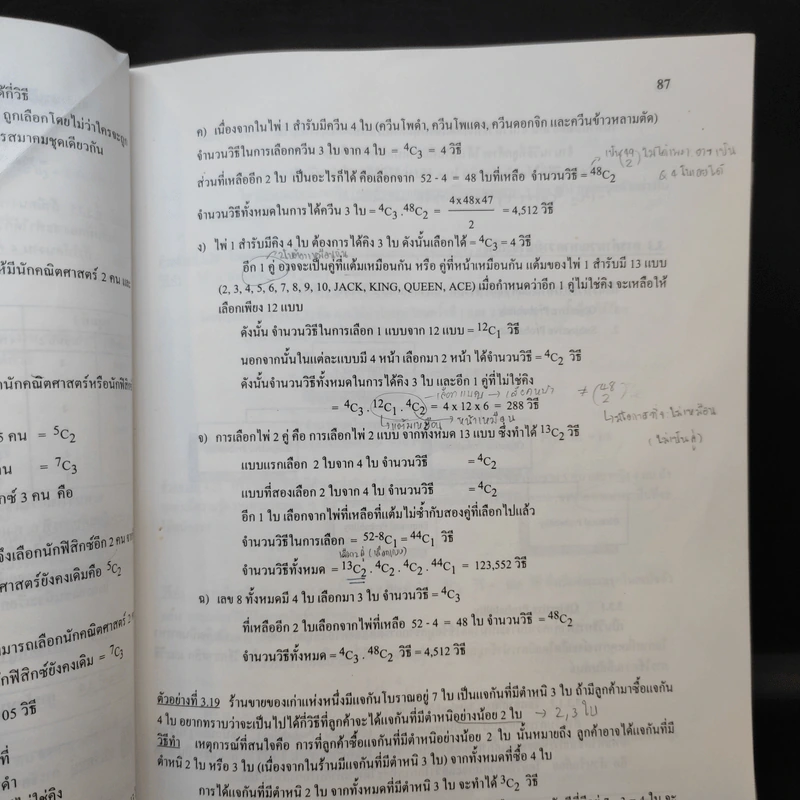 ได้กี่วิธี
ถูกเลือกโดยไม่ว่าใครจะถูก
รสมาคมชุดเดียวกัน
ห้มีนักคณิตศาสตร์ 2 คน และ
นักคณิตศาสตร์หรือนักฟิสิก
5 คน = ⁵C₂
น = ⁷C₃
กซ์ 3 คน คือ
จึงเลือกนักฟิสิกซ์อีก 2 คน จาก
ศาสตร์ยังคงเดิมคือ ⁵C₂
ามารถเลือกนักคณิตศาสตร์ 2
กฟิสิกซ์ยังคงเดิม = ⁷C₃
05 วิธี
ที่
ดำ
ไม่ใช่คิง
87
ค) เนื่องจากในไพ่ 1 สำรับมีควีน 4 ใบ (ควีนโพดำ, ควีนโพแดง, ควีนดอกจิก และควีนข้าวหลามตัด)
จำนวนวิธีในการเลือกควีน 3 ใบ จาก 4 ใบ = ⁴C₃ = 4 วิธี
ส่วนที่เหลืออีก 2 ใบ เป็นอะไรก็ได้ คือเลือกจาก 52 - 4 = 48 ใบที่เหลือ จำนวนวิธี = ⁴⁸C₂
จำนวนวิธีทั้งหมดในการได้ควีน 3 ใบ = ⁴C₃ . ⁴⁸C₂ = 4x48x47 / 2 = 4,512 วิธี
ง) ไพ่ 1 สำรับมีคิง 4 ใบ ต้องการได้คิง 3 ใบ ดังนั้นเลือกได้ = ⁴C₃ = 4 วิธี
อีก 1 คู่ อาจจะเป็นคู่ที่แต้มเหมือนกัน หรือ คู่ที่หน้าเหมือนกัน แต้มของไพ่ 1 สำรับมี 13 แบบ
(2, 3, 4, 5, 6, 7, 8, 9, 10, JACK, KING, QUEEN, ACE) เมื่อกำหนดว่าอีก 1 คู่ไม่ใช่คิง จะเหลือให้
เลือกเพียง 12 แบบ
ดังนั้น จำนวนวิธีในการเลือก 1 แบบจาก 12 แบบ = ¹²C₁ วิธี
นอกจากนั้นในแต่ละแบบมี 4 หน้า เลือกมา 2 หน้า ได้จำนวนวิธี = ⁴C₂ วิธี
ดังนั้นจำนวนวิธีทั้งหมดในการได้คิง 3 ใบ และอีก 1 คู่ที่ไม่ใช่คิง
เลือกแบบ → เลือกหน้า
= ⁴C₃ . ¹²C₁ . ⁴C₂ = 4 x 12 x 6 = 288 วิธี ≠ (48 2)
หน้าเหมือน
จ) การเลือกไพ่ 2 คู่ คือ การเลือกไพ่ 2 แบบ จากทั้งหมด 13 แบบ ซึ่งทำได้ ¹³C₂ วิธี
แบบแรกเลือก 2 ใบจาก 4 ใบ จำนวนวิธี = ⁴C₂
แบบที่สองเลือก 2 ใบจาก 4 ใบ จำนวนวิธี = ⁴C₂
อีก 1 ใบ เลือกจากไพ่ที่เหลือที่แต้มไม่ซ้ำกับสองคู่ที่เลือกไปแล้ว
จำนวนวิธีในการเลือก = ⁵²⁻⁸C₁ = ⁴⁴C₁ วิธี
จำนวนวิธีทั้งหมด = ¹³C₂ . ⁴C₂ . ⁴C₂ . ⁴⁴C₁ = 123,552 วิธี
ฉ) เลข 8 ทั้งหมดมี 4 ใบ เลือกมา 3 ใบ จำนวนวิธี = ⁴C₃
ที่เหลืออีก 2 ใบเลือกจากไพ่ที่เหลือ 52 - 4 = 48 ใบ จำนวนวิธี = ⁴⁸C₂
จำนวนวิธีทั้งหมด = ⁴C₃ . ⁴⁸C₂ วิธี = 4,512 วิธี
ตัวอย่างที่ 3.19 ร้านขายของเก่าแห่งหนึ่งมีแจกันโบราณอยู่ 7 ใบ เป็นแจกันที่มีตำหนิ 3 ใบ ถ้ามีลูกค้ามาซื้อแจกัน
4 ใบ อยากทราบว่าจะเป็นไปได้ที่วิธีที่ลูกค้าจะได้แจกันที่มีตำหนิอย่างน้อย 2 ใบ → 2, 3 ใบ
วิธีทำ เหตุการณ์ที่สนใจคือ การที่ลูกค้าซื้อแจกันที่มีตำหนิอย่างน้อย 2 ใบ นั้นหมายถึง ลูกค้าอาจได้แจกันที่มี
ตำหนิ 2 ใบ หรือ 3 ใบ (เนื่องจากในร้านมีแจกันที่มีตำหนิ 3 ใบ) จากทั้งหมดที่ซื้อ 4 ใบ
การได้แจกันที่มีตำหนิ 2 ใบ จากทั้งหมดที่มีตำหนิ 3 ใบ จะทำได้ ³C₂ วิธี